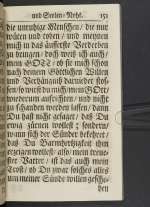 und Seelen-Noht. 151
die unruhige Menschen / die nur
wüten und toben / und meynen
mich in das äusserste Verderben
zu bringen / doch weiß ich auch /
mein GOtt / ob sie mich schon
nach deinem Göttlichen Willen
und Verhängniß darnieder stos-
sen / so wirst du mich mein GOtt /
wiederum aufrichten / und nicht
zu schanden werden lassen / dann
Du hast nicht gesaget / daß Du
ewig zürnen wollest / sondern /
wann sich der Sünder bekehret /
daß Du Barmhertzigkeit ihm
erzeigen wollest / also / mein treue-
ster Vatter / ist das auch mein
Trost / ob Du zwar solches alles
um meiner Sünde willen gesche-
hen